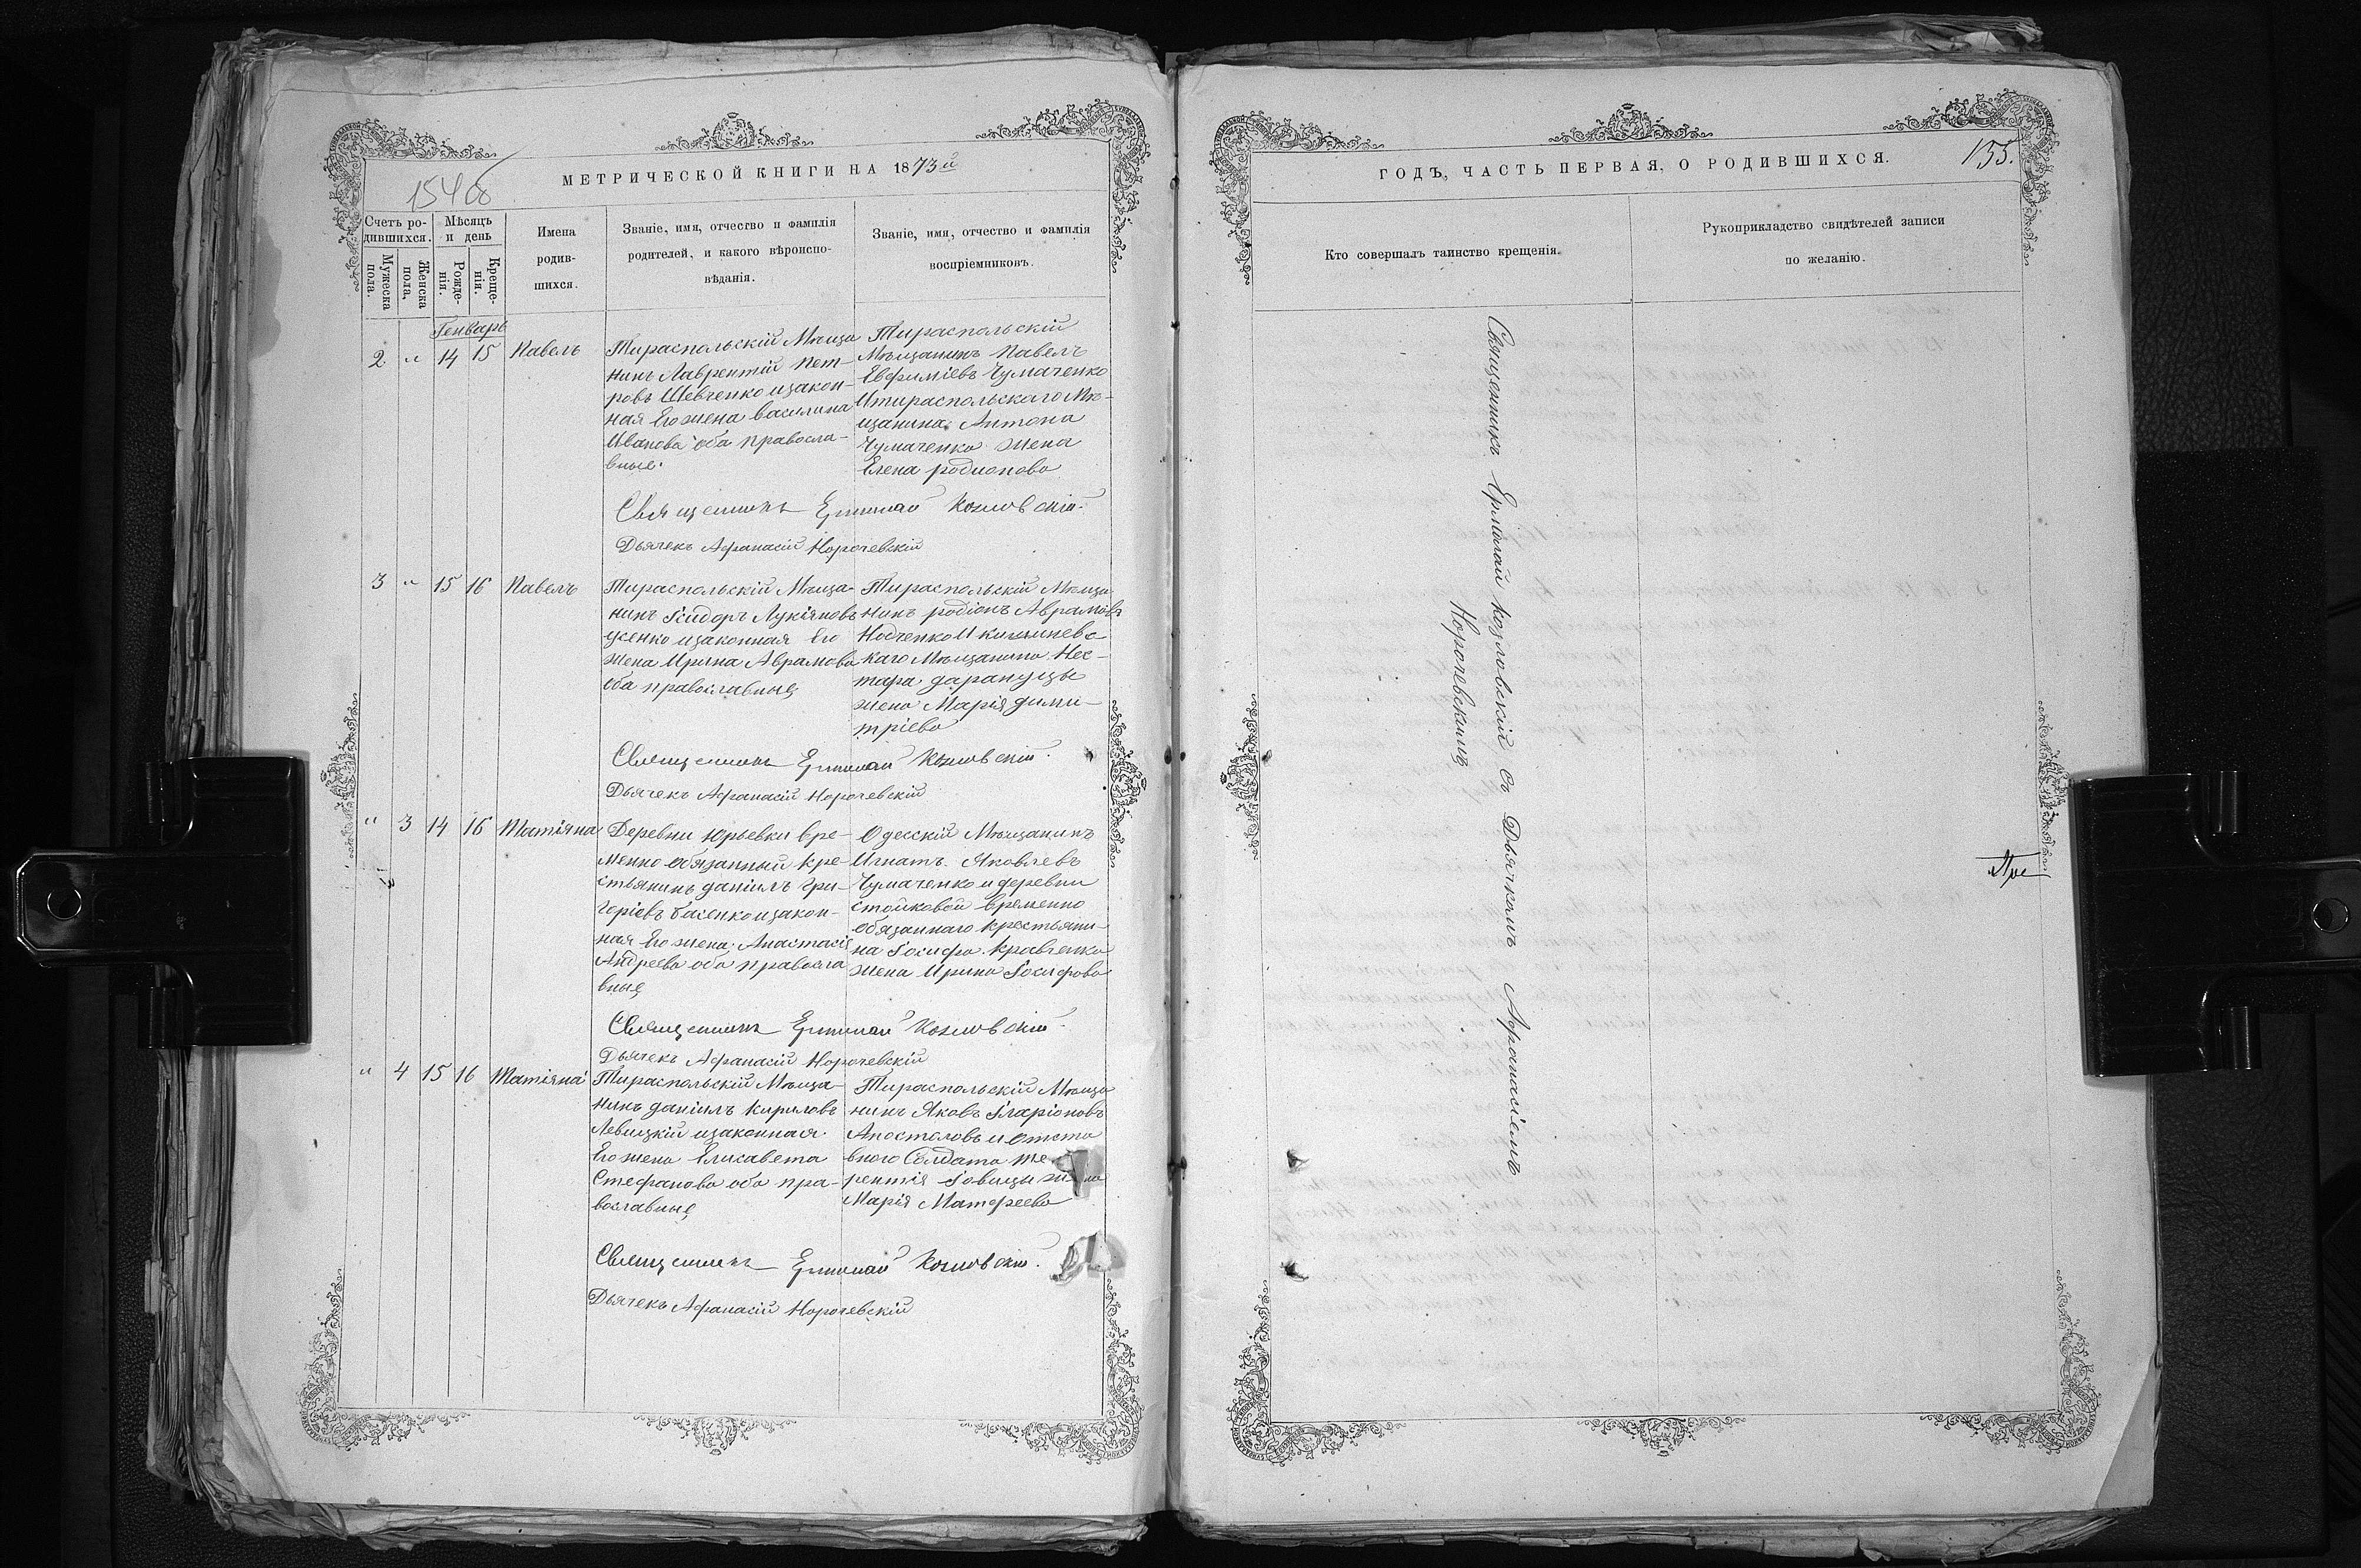 МЕТРИЧЕСКОЙ КНИГИ НА 1873й
Счетъ ро-
дившихся.
Мужеска
пола.
Женска
пола,
Мѣсяцъ
и день
Рожде-
нія.
Креще-
нія.
Имена
родив-
шихся.
Званіе, имя, отчество и фамилія
родителей, и какого вѣроиспо-
вѣданія.
Званіе, имя, отчество и фамилія
воспріемниковъ.
Генварь
2 " 14 15 Павелъ
Тираспольскій Мѣща
нинъ Лаврентій Пет-
ровъ Шевченко изакон-
ная Его жена Василина
Иванова оба правосла-
вные.
Тираспольскій
Мѣщанинъ Павелъ
Евфиміевъ Чумаченко
Итираспольскаго Мѣ-
щанина Антона
Чумаченко жена
Елена родионова
Священникъ Ермолай Козловскій.
Дьячекъ Афанасій Норочевскій
3 " 15 16 Павелъ
Тираспольскій Мѣща-
нинъ Ісидоръ Лукіяновъ
изаконная Его
жена Ирина Аврамова
оба православные
Тираспольскій Мѣща
нинъ родіонъ Аврамовъ
И кишиневс
каго Мѣщанина Нес-
тара
жена Марія дими-
тріева
Священникъ Ермолай Козловскій.
Дьячекъ Афанасій Норочевскій
" 3 14 16 Татіяна
Деревни Юрьевки вре-
менно обязанный кре-
стьянинъ даніилъ Гри-
горіевъ изакон-
ная Его жена Анастасія
Андреева оба правосла
вные
Одесскій Мѣщанинъ
Игнатъ Яковлевъ
Чумаченко и деревни
Стойковой временно
обязаннаго крестьяни-
на Іосифа Кравченко
жена Ирина Іосифова
Священникъ Ермолай Козловскій.
Дьячекъ Афанасій Норочевскій
" 4 15 16 Татіяна
Тираспольскій Мѣща-
нинъ даніилъ Кириловъ
Левицкій изаконная
Его жена Елисавета
Стефанова оба пра-
вославные
Тираспольскій Мѣща
нинъ Яковъ Іларіоновъ
Апостоловъ и отста
вного Солдата Те
рентія жена
Марія Матфеева
Священникъ Ермолай Козловскій.
Дьячекъ Афанасій Норочевскій
ГОДЪ, ЧАСТЬ ПЕРВАЯ, О РОДИВШИХСЯ.
155.
Кто совершалъ таинство крещенія.
Рукоприкладство свидѣтелей записи
по желанію.
Священникъ Ермолай Козловскій Съ Дьячкомъ Афанасіемъ
Норочевскимъ